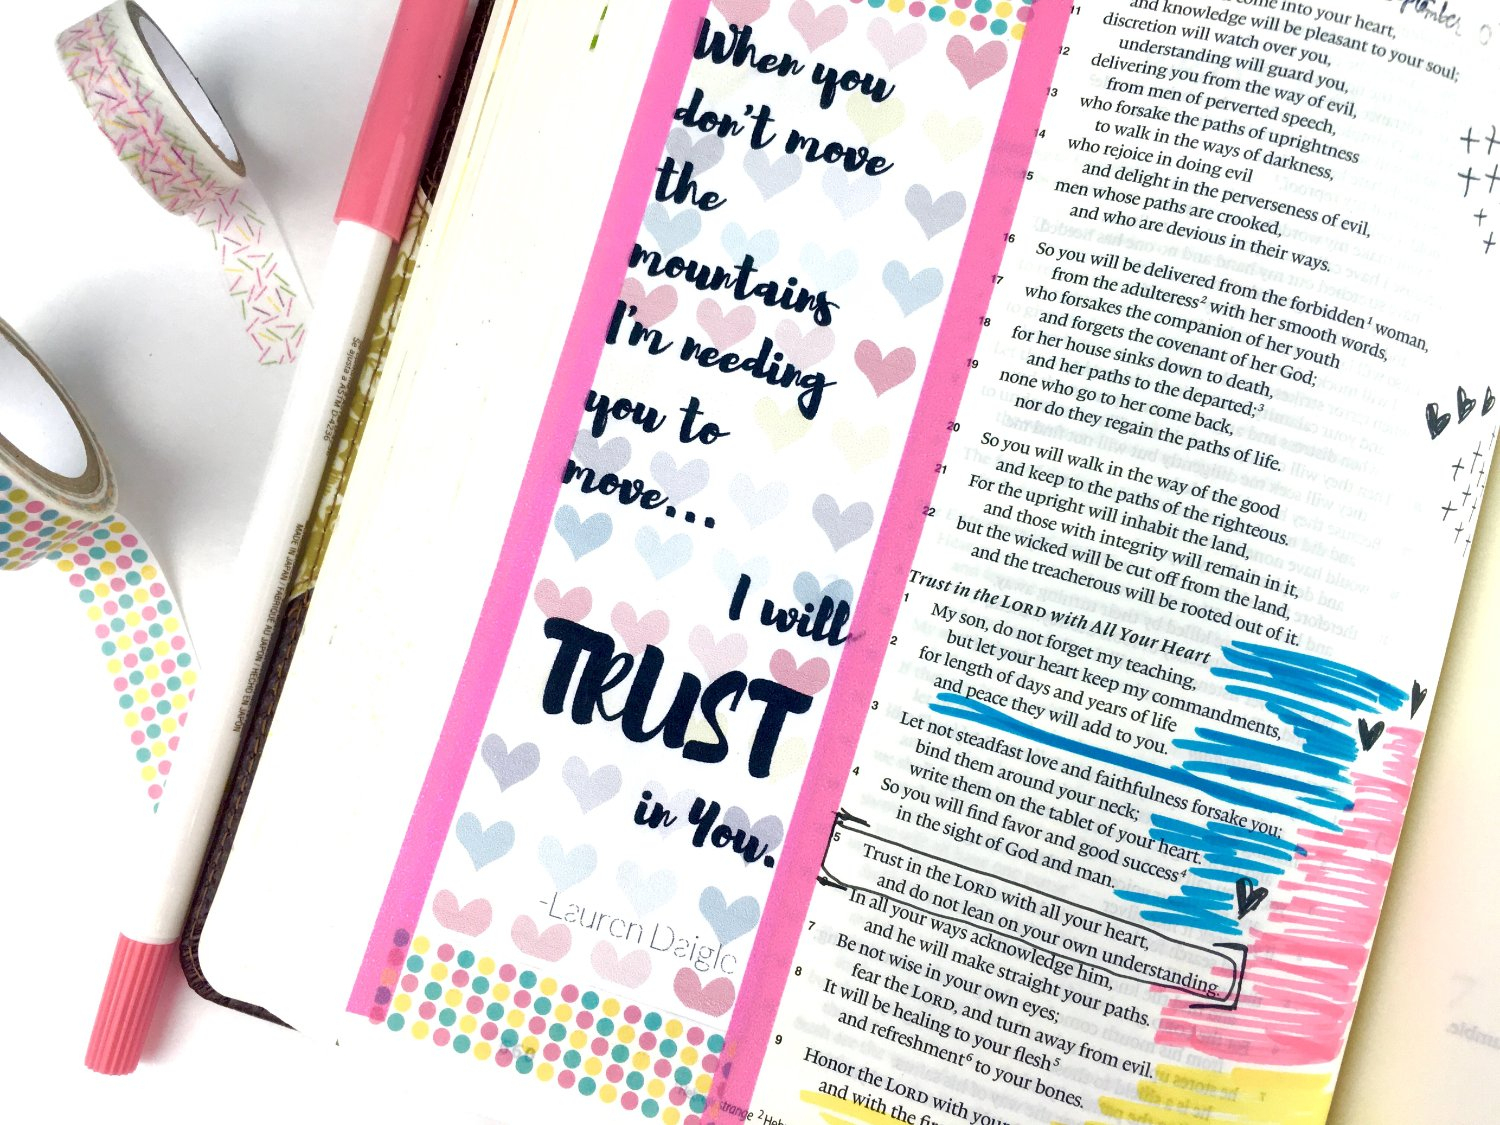 When you
don't move
the
mountains
I'm needing
you to
move...
I will
TRUST
in You.
-Lauren Daigle
Se ajusta a ASTM D-4236
MADE IN JAPAN / FABRIQUÉ AU JAPON / HECHO EN JAPON
September
come into your heart,
11 and knowledge will be pleasant to your soul;
discretion will watch over you,
12 understanding will guard you,
delivering you from the way of evil,
13 from men of perverted speech,
who forsake the paths of uprightness
14 to walk in the ways of darkness,
who rejoice in doing evil
15 and delight in the perverseness of evil,
men whose paths are crooked,
and who are devious in their ways.
16 So you will be delivered from the forbidden¹ woman,
17 from the adulteress² with her smooth words,
who forsakes the companion of her youth
18 and forgets the covenant of her God;
for her house sinks down to death,
19 and her paths to the departed;³
none who go to her come back,
nor do they regain the paths of life.
20 So you will walk in the way of the good
21 and keep to the paths of the righteous.
For the upright will inhabit the land,
22 and those with integrity will remain in it,
but the wicked will be cut off from the land,
and the treacherous will be rooted out of it.
Trust in the LORD with All Your Heart
1 My son, do not forget my teaching,
2 but let your heart keep my commandments,
for length of days and years of life
3 and peace they will add to you.
Let not steadfast love and faithfulness forsake you;
bind them around your neck;
4 write them on the tablet of your heart.
So you will find favor and good success⁴
in the sight of God and man.
5 Trust in the LORD with all your heart,
and do not lean on your own understanding.
In all your ways acknowledge him,
7 and he will make straight your paths.
Be not wise in your own eyes;
8 fear the LORD, and turn away from evil.
It will be healing to your flesh⁵
9 and refreshment⁶ to your bones.
Honor the LORD with your
and with the
strange ²